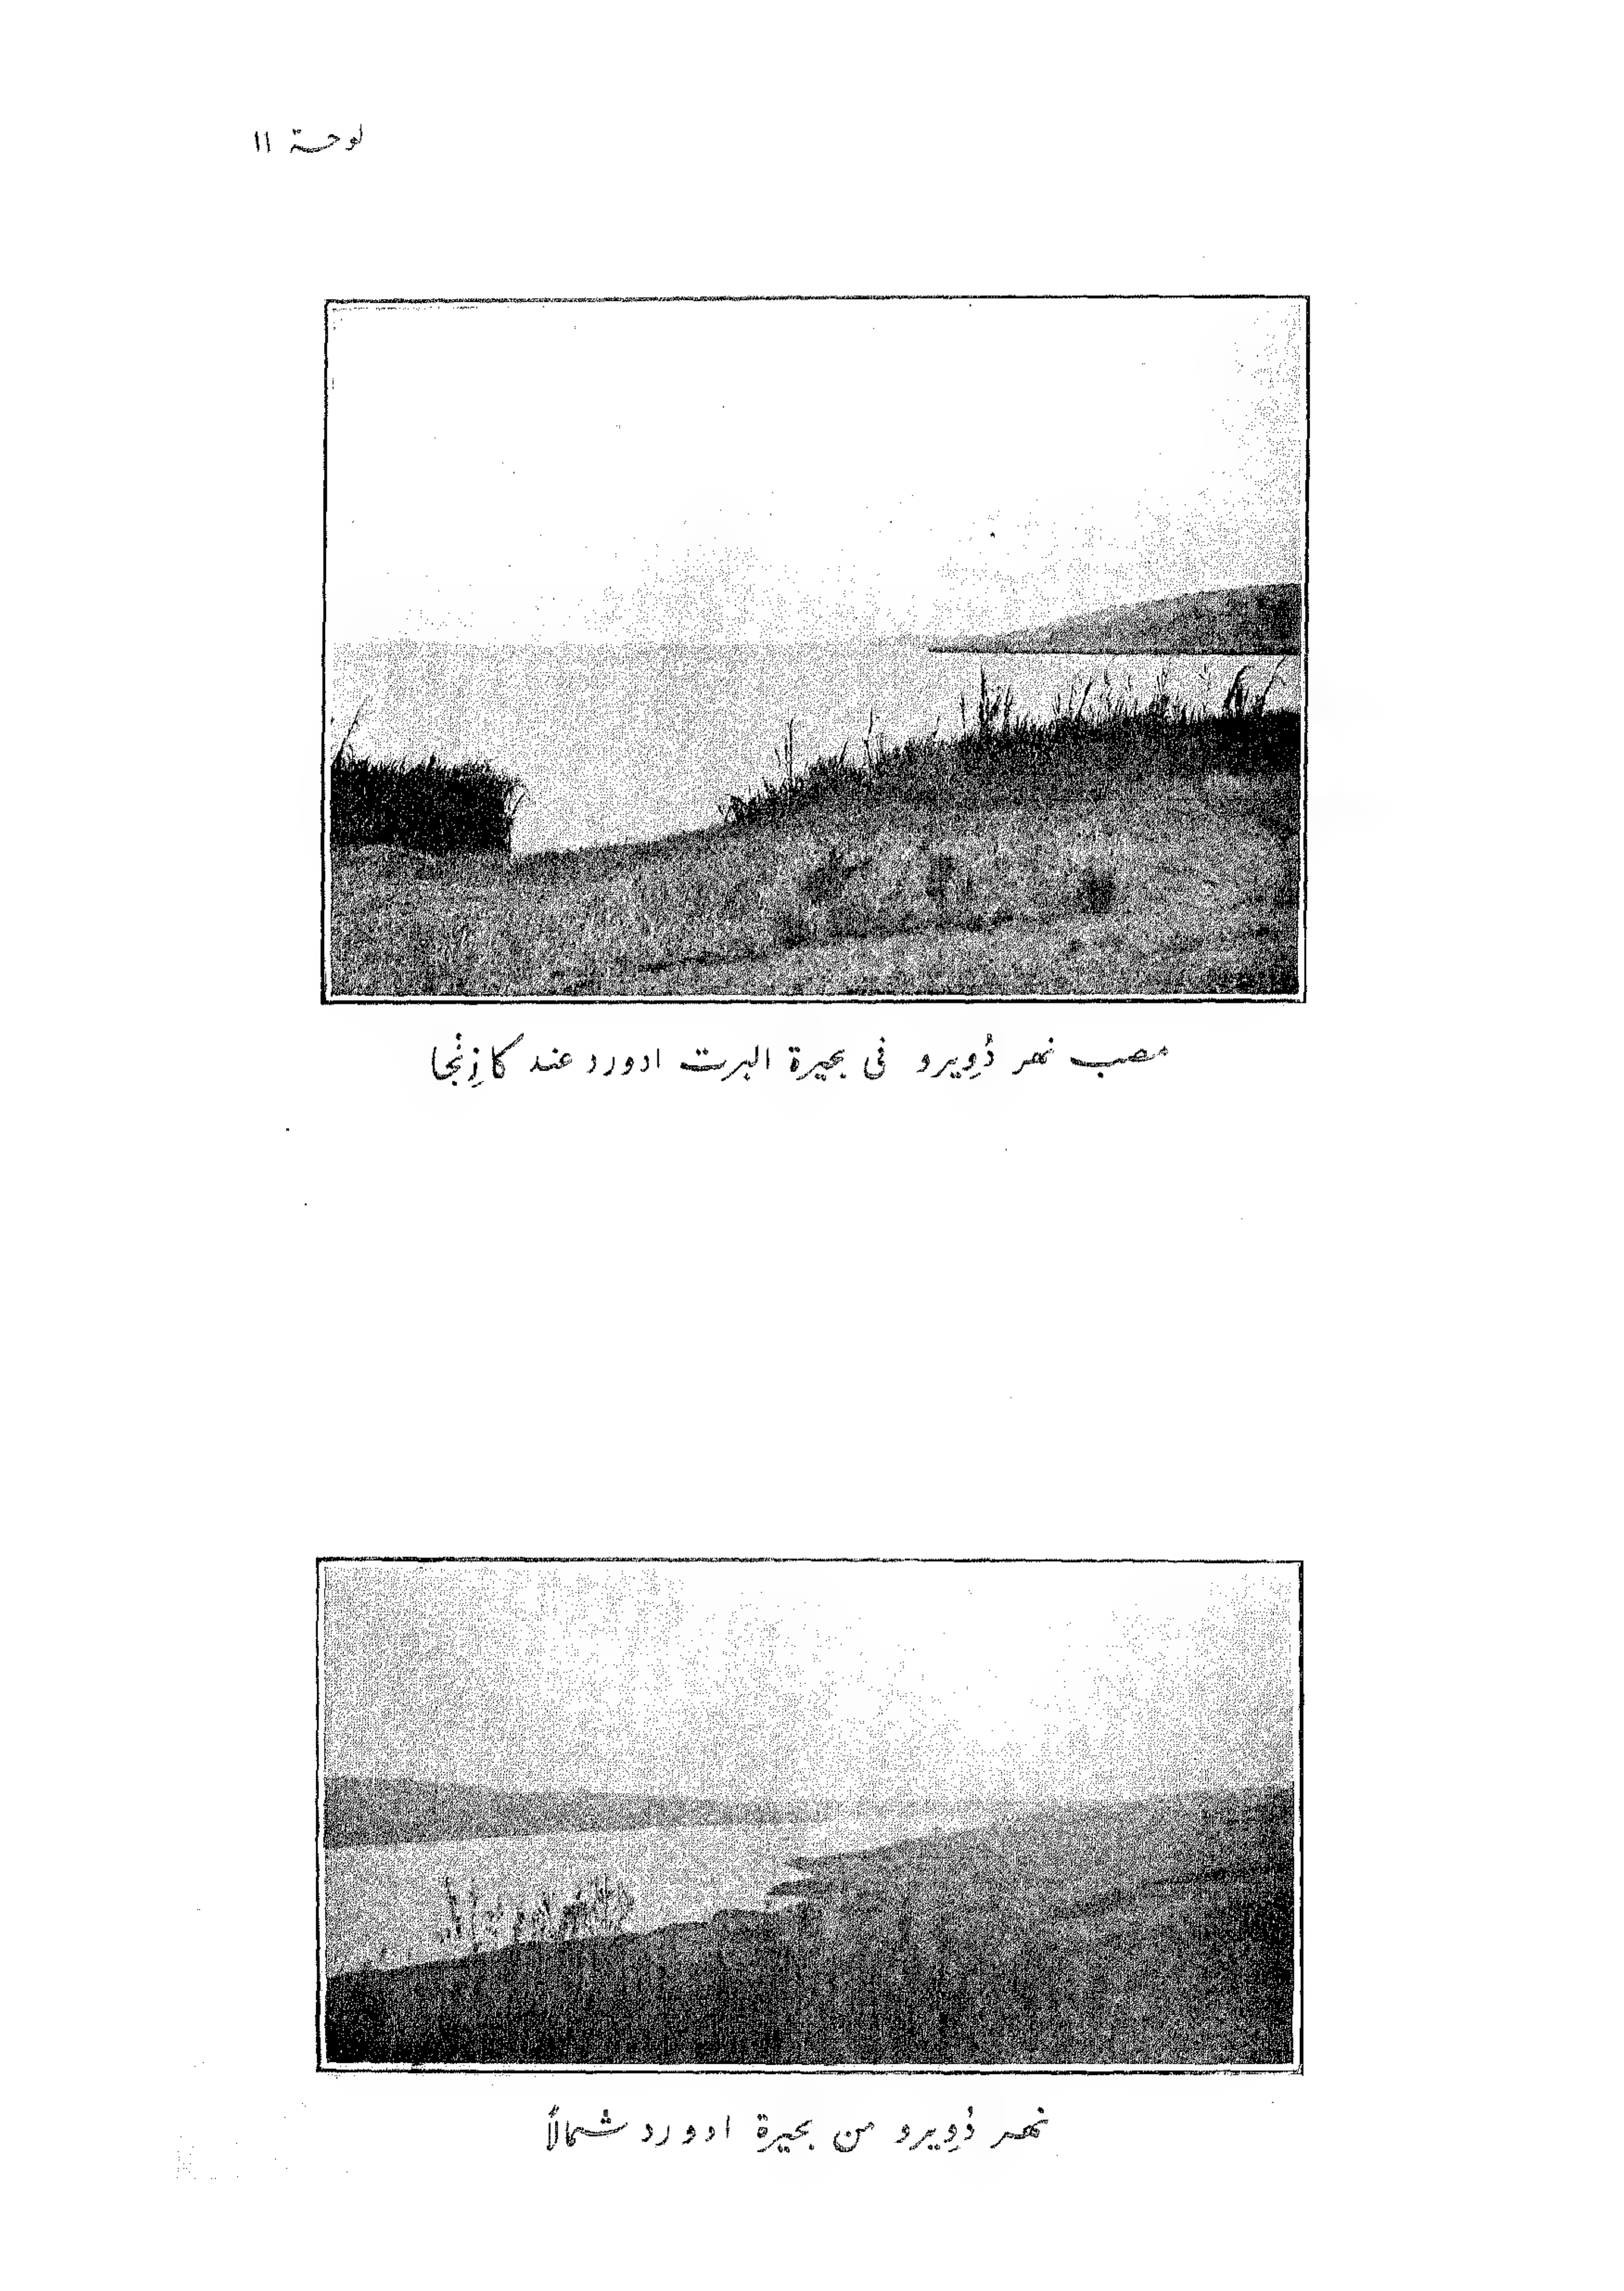 لوحة ١١
مصب نهر ذُوِيرو فى بحيرة البرت ادورد عند كازِنْجا
نهر ذُوِيرو من بحيرة ادورد شمالاً